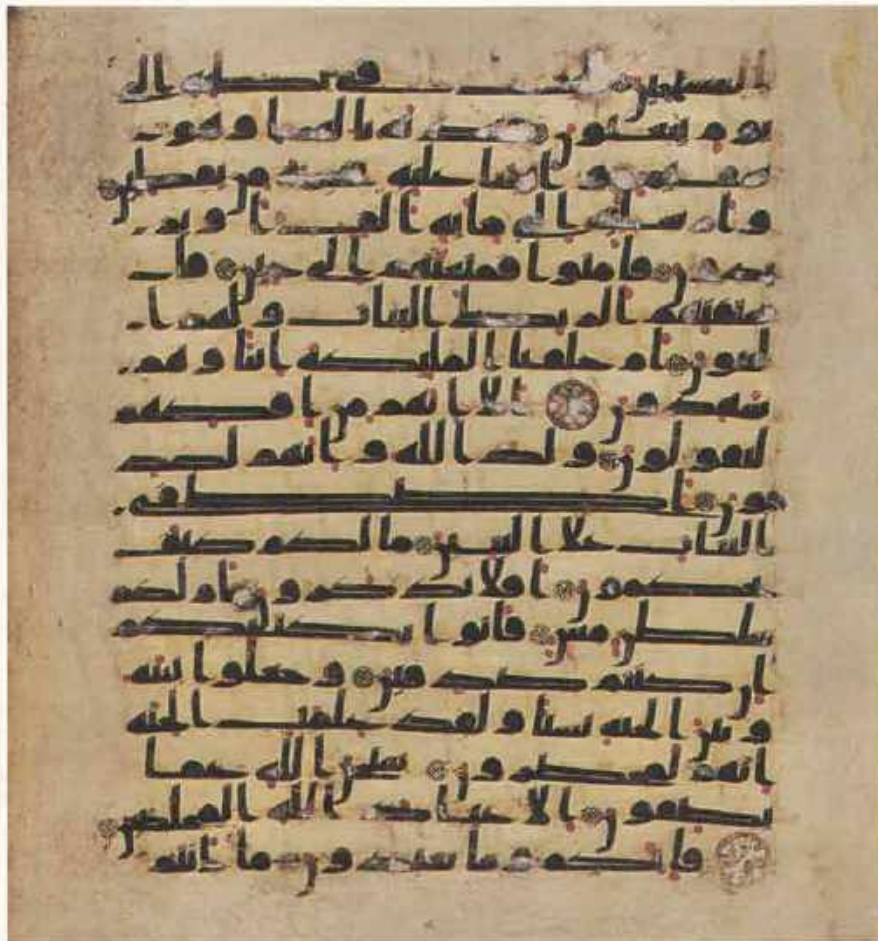 المسبحين للبث في بطنه الى
يوم يبعثون فنبذنه بالعرا وهو
سقيم وانبتنا عليه شجرة من يقطين
وارسلنه الى مايه الف او يز
يدون فامنوا فمتعنهم الى حين فا
ستفتهم الربك البنات ولهم ا
لبنون ام خلقنا المليكه انثا وهم
شهدون الا انهم من افكهم
ليقولون ولد الله وانهم لكذ
بون اصطفى
البنات على البنين ما لكم كيف
تحكمون افلا تذكرون ام لكم
سلطن مبين فاتوا بكتبكم
ان كنتم صدقين وجعلوا بينه
وبين الجنه نسبا ولقد علمت الجنه
انهم لمحضرون سبحن الله عما
يصفون الا عباد الله المخلصين
فانكم وما تعبدون ما انتم